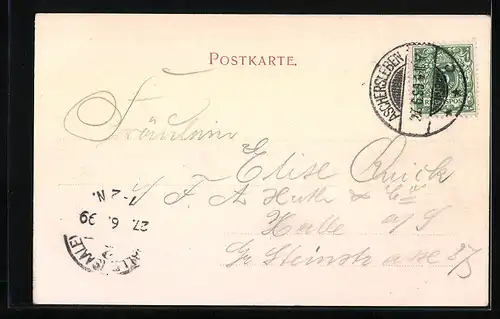 POSTKARTE.
ASCHERSLEBEN
Fräulein
Elise Quick
F. A. Huth & Co
Halle a/S
Gr Steinstrasse 87/
1-2 N.
27. 6. 99